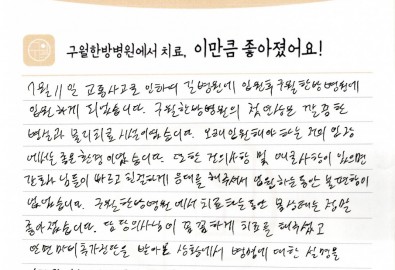 구월한방병원에서 치료, 이만큼 좋아졌어요!
7월 11일 교통사고로 인하여 길병원에 입원후 구월한방병원에
입원하게 되었습니다. 구월한방병원의 첫인상은 깔끔한
병실과 물리치료 시설이었습니다. 오래 입원해야 하는 저의 입장
에서는 좋은 환경이었습니다. 또한 건의사항 및 애로사항이 있으면
간호사님들이 빠르고 친절하게 응대를 해주셔서 입원하는동안 불편함이
없었습니다. 구월한방병원에서 치료하는동안 몸상태는 정말
좋아졌습니다. 담당의사님이 꼼꼼하게 치료를 해주셨고
받아본 상황에서 병명에 대한 설명을